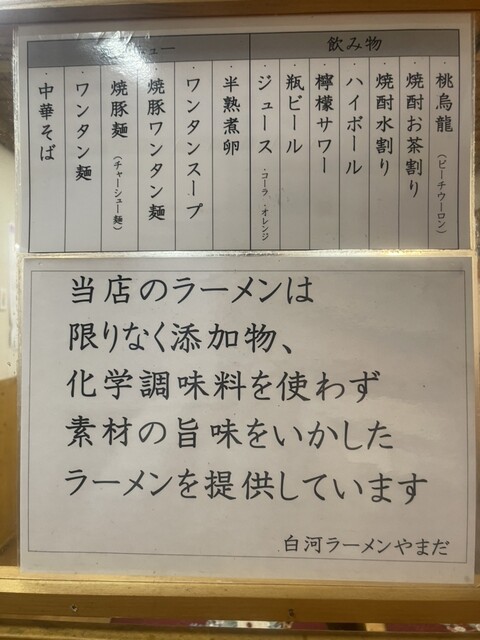 飲み物
桃烏龍（ピーチウーロン）
焼酎お茶割り
焼酎水割り
ハイボール
檸檬サワー
瓶ビール
ジュース ・コーラ ・オレンジ
ュー
半熟煮卵
ワンタンスープ
焼豚ワンタン麺
焼豚麺（チャーシュー麺）
ワンタン麺
中華そば
当店のラーメンは
限りなく添加物、
化学調味料を使わず
素材の旨味をいかした
ラーメンを提供しています
白河ラーメンやまだ